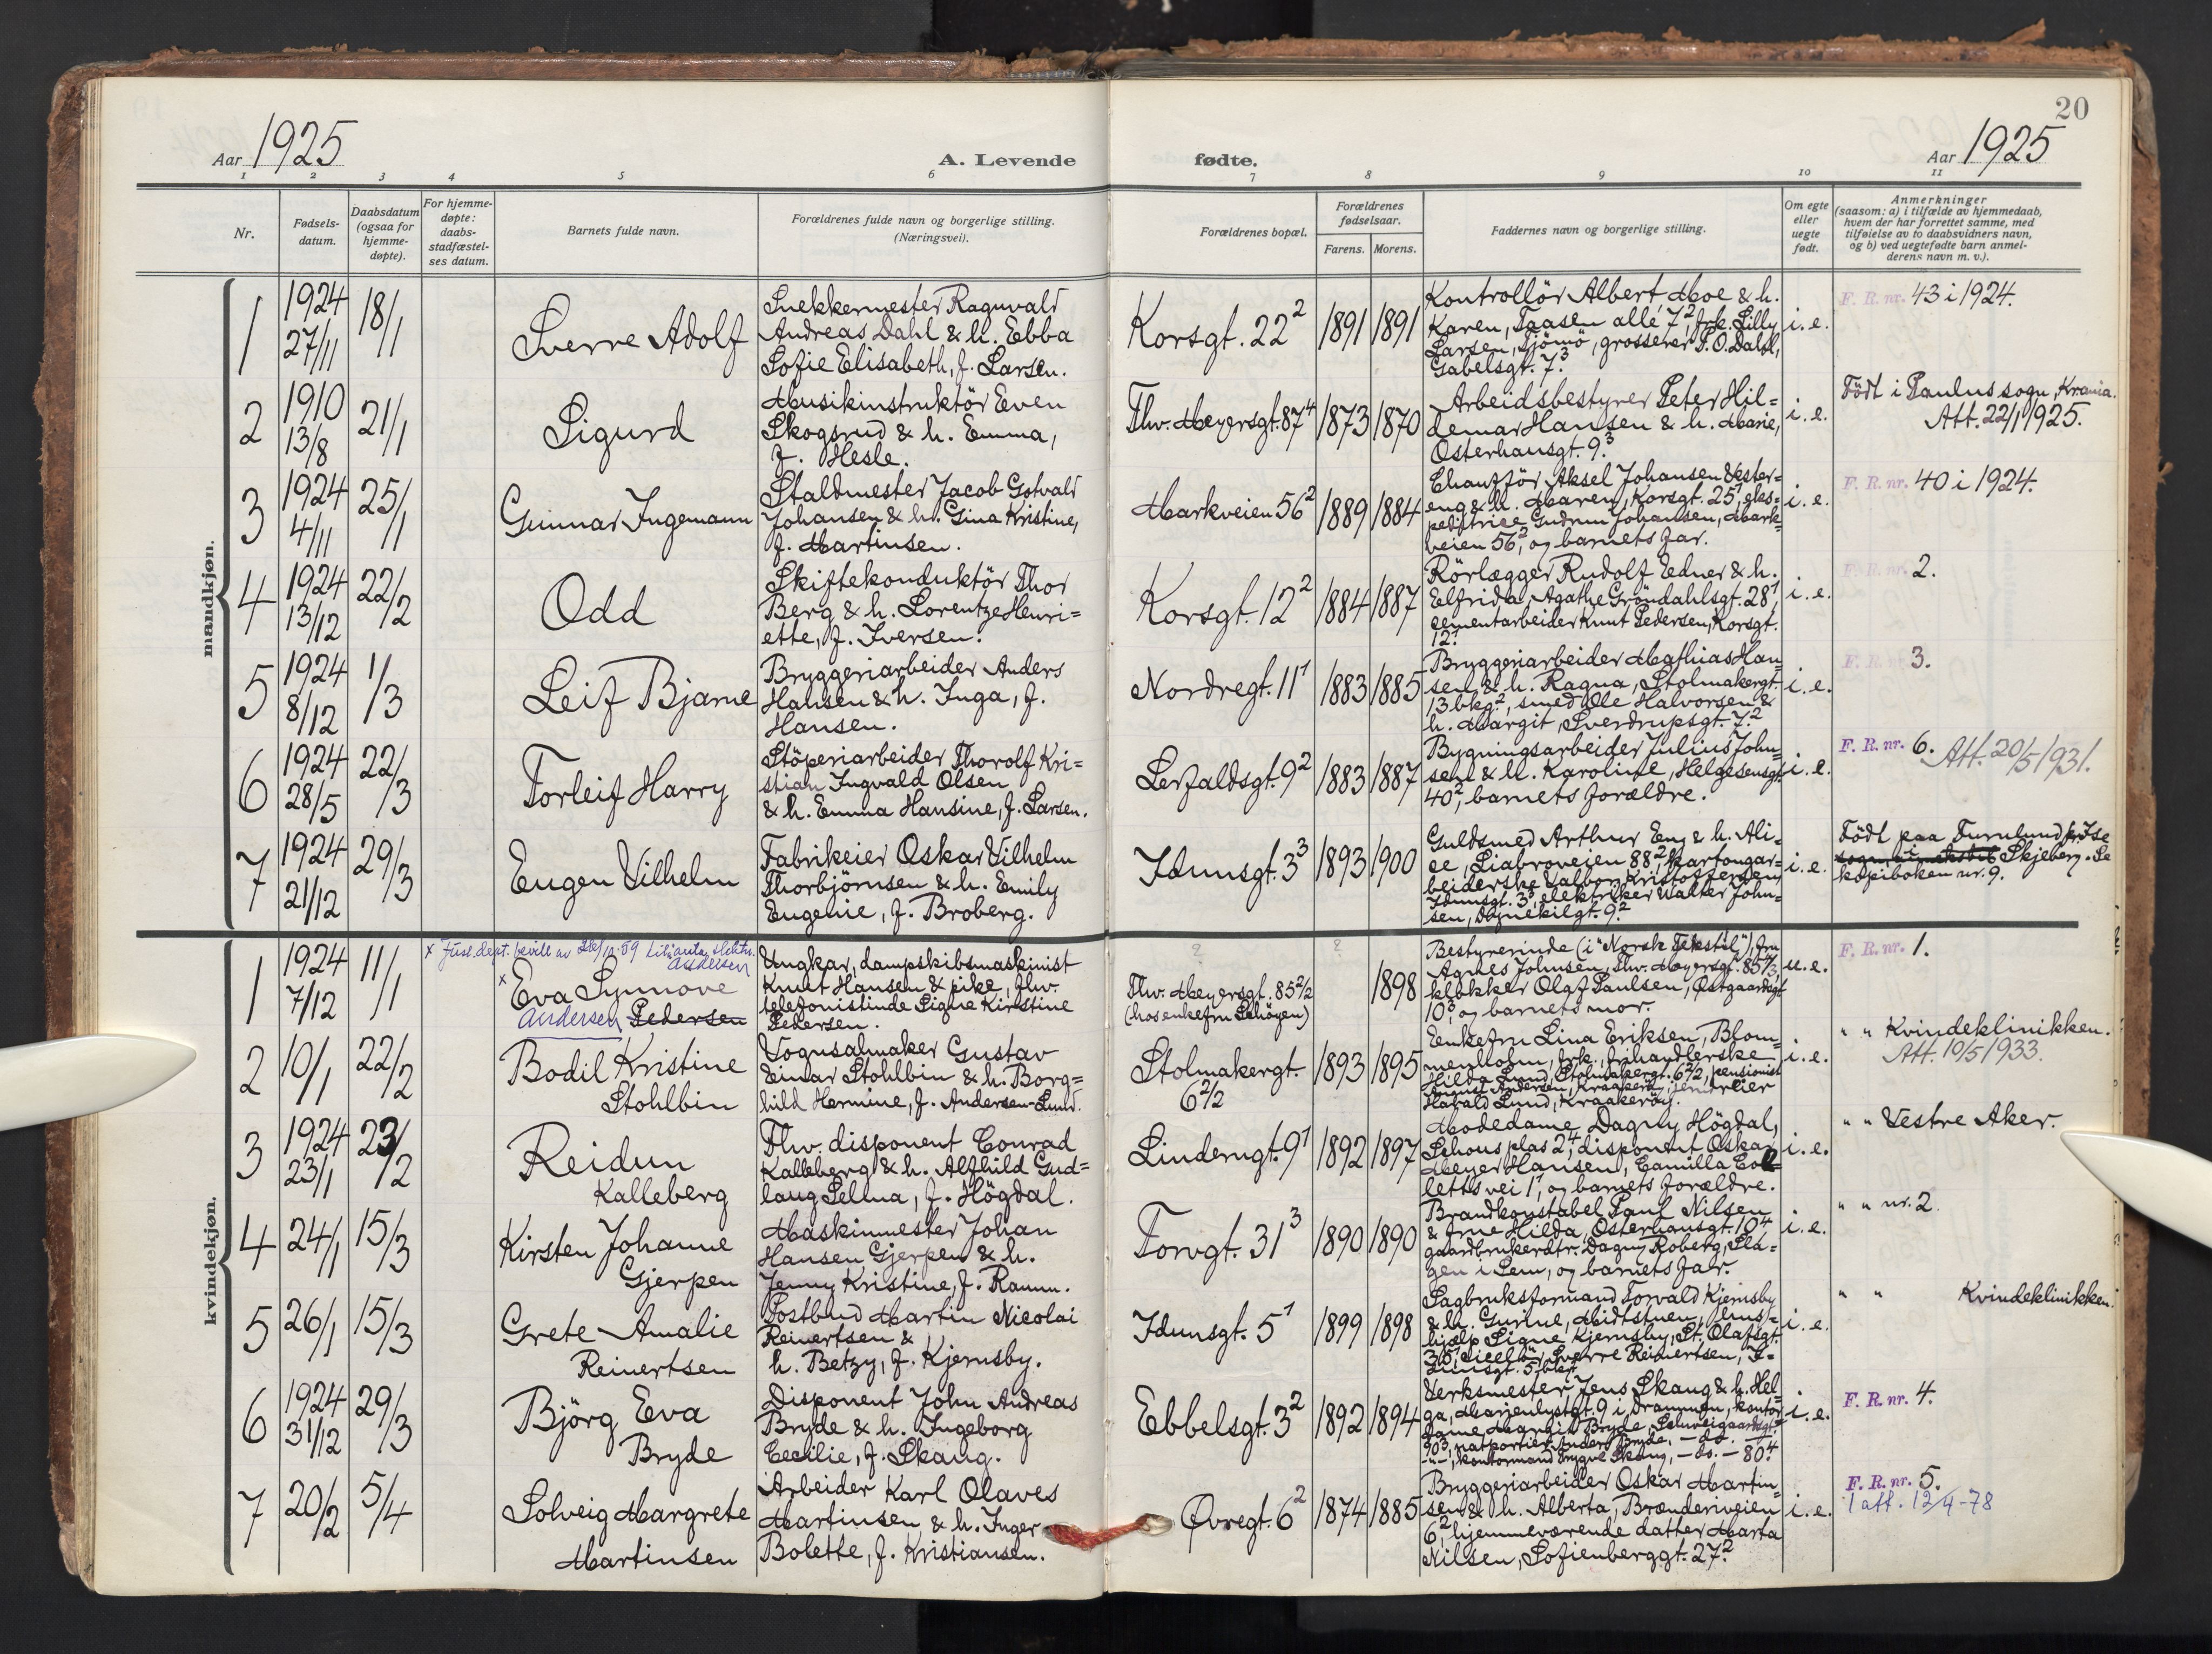 20
Aar 1925
A. Levende
fødte.
Aar 1925
1 2 3 4 5 6 7 8 9 10 11
Nr.
Fødsels-
datum.
Daabsdatum
(ogsaa for
hjemme-
døpte).
For hjemme-
døpte:
daabs-
stadfæstel-
ses datum.
Barnets fulde navn.
Forældrenes fulde navn og borgerlige stilling.
(Næringsvei).
Forældrenes bopæl.
Forældrenes
fødselsaar.
Farens. Morens.
Faddernes navn og borgerlige stilling.
Om egte
eller
uegte
født.
Anmerkninger
(saasom: a) i tilfælde av hjemmedaab,
hvem der har forrettet samme, med
tilføielse av to daabsvidners navn,
og b) ved uegtefødte barn anmel-
derens navn m. v.).
mandkjøn.
1
1924
27/11
18/1
Sverre Adolf
Snekkermester Ragnvald
Andreas Dahl & h. Ebba
Sofie Elisabeth, f. Larsen.
Korsgt. 22²
1891 1891
Kontrollör Albert Moe & h.
Karen, Taasen alle 7², frk. Lilly
Larsen, Tjömö, grosserer P. O. Dahl,
Gabelsgt. 7³.
i. e.
F. R. nr. 43 i 1924.
2
1910
13/8
21/1
Sigurd
Musikinstruktör Even
Skogsrud & h. Emma,
f. Hesle.
Thv. Meyersgt. 87⁴
1873 1870
Arbeidsbestyrer Peter Hil=
demar Hansen & h. Marie,
Osterhausgt. 9³.
i. e.
Födt i Paulus sogn, Krania.
Att. 22/1 1925.
3
1924
4/11
25/1
Gunnar Ingemann
Staldmester Jacob Gotvald
Johansen & h. Gina Kristine,
f. Martinsen.
Markveien 56²
1889 1884
Chaufför Aksel Johansen Vester=
eng & h. Maren, Korsgt. 25¹, eks=
peditrice Gudrun Johansen, Mark=
veien 56², og barnets far.
i. e.
F. R. nr. 40 i 1924.
4
1924
13/12
22/2
Odd
Skiftekonduktör Thor
Berg & h. Lorentze Henri=
ette, f. Iversen.
Korsgt. 12²
1884 1887
Rörlægger Rudolf Edner & h.
Elfrida, Agathe Gröndahlsgt. 28¹,
cementarbeider Knut Pedersen, Korsgt.
12².
i. e.
F. R. nr. 2.
5
1924
8/12
1/3
Leif Bjarne
Bryggeriarbeider Anders
Hansen & h. Inga, f.
Hansen.
Nordregt. 11¹
1883 1885
Bryggeriarbeider Mathias Han=
sen & h. Ragna, Stolmakergt.
13 bkg², smed Ole Halvorsen &
h. Margit, Sverdrupsgt. 7².
i. e.
F. R. nr. 3.
6
1924
28/5
22/3
Torleif Harry
Stöperiarbeider Thorolf Kri=
stian Ingvald Olsen
& h. Emma Hansine, f. Larsen.
Lerfaldsgt. 9²
1883 1887
Bygningsarbeider Julius John=
sen & h. Karoline, Helgesensgt.
40², barnets forældre.
i. e.
F. R. nr. 6. Att. 20/5 1931.
7
1924
21/12
29/3
Eugen Vilhelm
Fabrikeier Oskar Vilhelm
Thorbjörnsen & h. Emily
Eugenie, f. Broberg.
Idunsgt. 3³
1893 1900
Guldsmed Arthur Eng & h. Ali=
ce, Liabroveien 88², kartongar=
beiderske Valborg Kristoffersen,
Idunsgt. 3³, elektriker Walter John=
sen, 9².
i. e.
Födt paa Furulund pr. Ise
i Skjeberg. Se
kopiboken nr. 9.
kvindekjøn.
1
1924
7/12
11/1
x Just. dept. bevill av 28/10-59 til anta slektn.
Andersen
x Eva Synnove
Andersen Pedersen
Ungkar, dampskibsmaskinist
Knut Hansen & pike, fhv.
telefonistinde Signe Kirstine
Pedersen.
?
Thv. Meyersgt. 85²/2
(hos enkefru Schöyen)
?
1898
Bestyrerinde (i "Norsk Tekstil"), fru
Agnes Johnsen, Thv. Meyersgt. 85⁴/3,
klokker Olaf Paulsen, Östgaardsgt.
10³, og barnets mor.
u. e.
F. R. nr. 1.
2
10/1
22/2
Bodil Kristine
Stohlbin
Vognsalmaker Gustav
Einar Stohlbin & h. Borg=
hild Hermine, f. Andersen-Lund.
Stolmakergt.
6²/2
1893 1895
Enkefru Lina Eriksen, Blom=
menholm, frk., frihandlerske
Hilda Lund, Stolmakergt. 6²/2, pensionist
August Andersen, Kraakeröy
Harald Lund, Kraakeröy.
i. e.
" " Kvindeklinikken.
Att. 10/5 1933.
3
1924
23/1
23/2
Reidun
Kalleberg
Fhv. disponent Conrad
Kalleberg & h. Alfhild Gud=
laug Selma, f. Högdal.
Linderngt. 9¹
1892 1897
Modedame Dagny Högdal,
Schous plas 2⁴, disponent Oskar
Meyer Hansen, Camilla Col=
letts vei 1¹, og barnets forældre.
i. e.
" " Vestre Aker.
4
24/1
15/3
Kirsten Johanne
Gjerpen
Maskinmester Johan
Hansen Gjerpen & h.
Jenny Kristine, f. Ramm.
Torvgt. 31³
1890 1890
Brandkonstabel Paul Nilsen
& frue Hilda, Osterhausgt. 10⁴,
gaardbrukerdtr. Dagny Roberg, Sla=
gen i Sem, og barnets far.
i. e.
" " nr. 2.
5
26/1
15/3
Grete Amalie
Reinertsen
Postbud Martin Nicolai
Reinertsen &
h. Betzy, f. Kjernsby.
Idunsgt. 5¹
1899 1898
Sagbruksformand Torvald Kjernsby
& h. Gunne, Midtstuen, hus=
hjælp Signe Kjernsby, St. Olafsgt.
Sverre Reinertsen, I=
dunsgt. 5
i. e.
" " Kvindeklinikken.
6
1924
31/12
29/3
Björg Eva
Bryde
Disponent John Andreas
Bryde & h. Ingeborg
Cecilie, f. Skaug.
Ebbelsgt. 3²
1892 1894
Verksmester Jens Skaug & h. Hel=
ga, Marienlystgt. 9 i Drammen, kontor
dame Margit Bryde, Schweigaardsgt.
90³, natportier Anders Bryde, - do. -
-"-, kontormand Trygve Skaug, - do. - 80⁴.
i. e.
F. R. nr. 4.
7
20/2
5/4
Solveig Margrete
Martinsen
Arbeider Karl Olaves
Martinsen & h. Inger
Bolette, f. Kristiansen.
Øvregt. 6²
1874 1885
Bryggeriarbeider Oskar Martin=
sen & h. Alberta, Brænderiveien
6², hjemmeværende datter Marta
Nilsen, Sofienberggt. 27².
i. e.
F. R. nr. 5.
1 att. 12/4-78